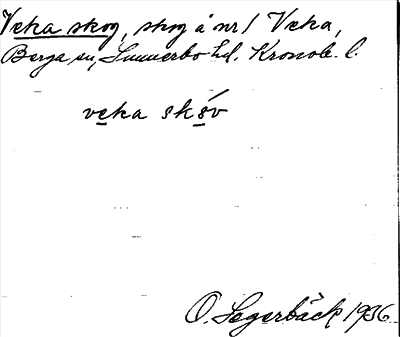 Veka skog, skog å nr 1 Veka,
Berga sn, Sunnerbo hd. Kronob. l.
veka skóv
O. Segerbäck 1936